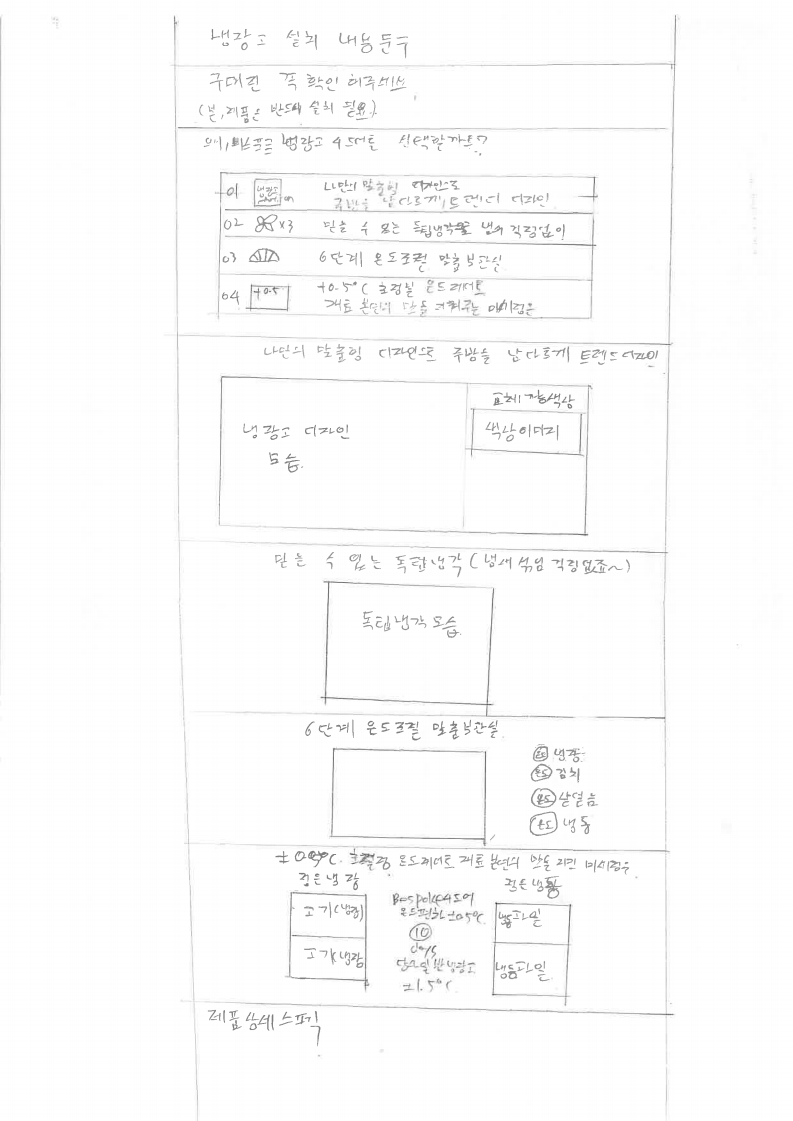 냉장고 설치
구매전 꼭 확인 해주세요
(본, 제품은 반드시 설치 필요)
왜, 비스포크 냉장고 4도어를 선택할까요?
01 냉장고
나만의 맞춤형 디자인으로
주방을 남다르게, 트렌디 디자인
02 ×3 믿을 수 있는 독립냉각으로 냄새 걱정없이
03 6단계 온도조절 맞춤보관실
04 +0.5 +0.5°C 초정밀 온도제어로
재료 본연의 맛을 지켜주는 미세정온
나만의 맞춤형 디자인으로 주방을 남다르게 트렌드디자인
냉장고 디자인
모습
교체 가능색상
색상이미지
믿을 수 있는 독립냉각 (냄새 섞임 걱정없죠~)
독립냉각 모습
6단계 온도조절 맞춤보관실
온도 냉장
온도 김치
온도 살얼음
온도 냉동
초정밀 온도제어로 재료 본연의 맛을 지킨 미세정온
정온냉장
고기(냉장)
고기(냉장)
4도어
온도편차 ±0.5°C
10
days
일반냉장고
±1.5°C
정온냉동
냉동과일
냉동과일
제품상세스펙